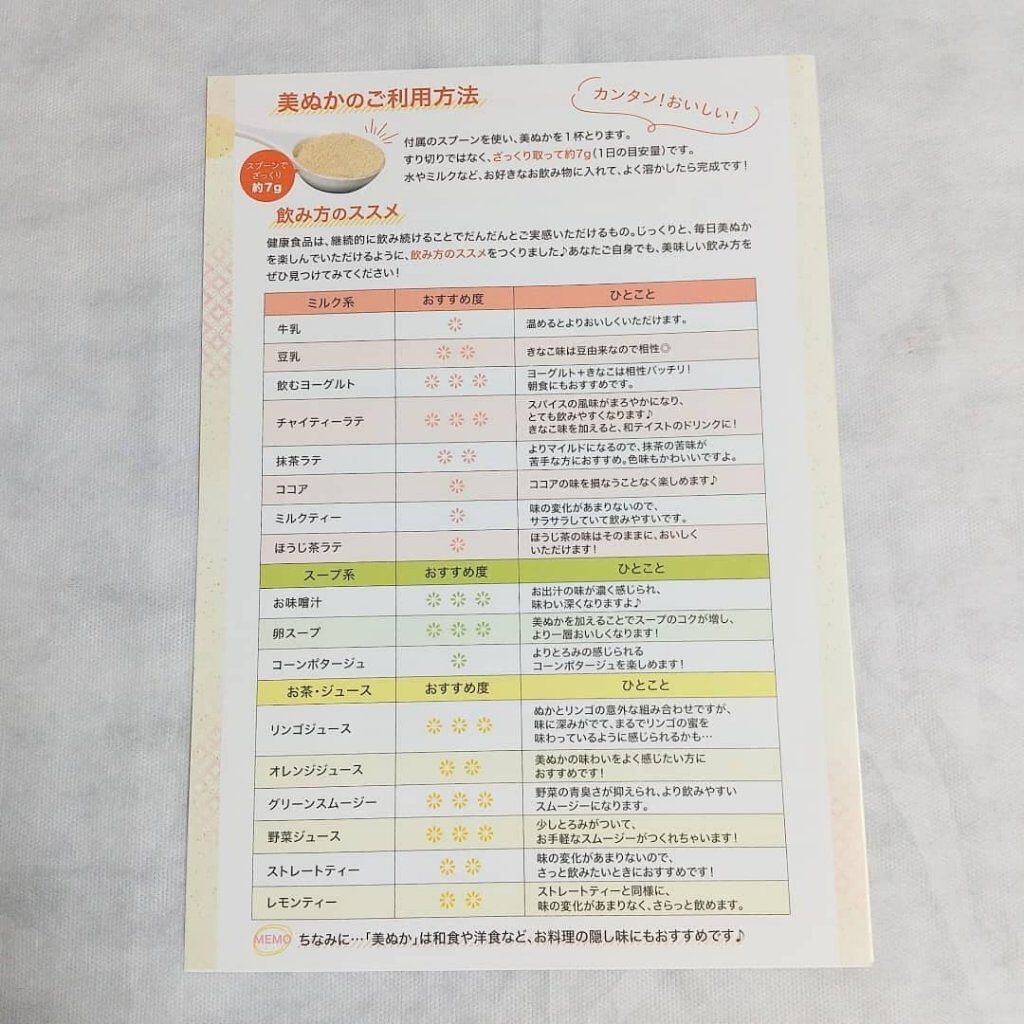 美ぬかのご利用方法
カンタン!おいしい!
スプーンで
ざっくり
約7g
付属のスプーンを使い、美ぬかを1杯とります。
すり切りではなく、ざっくり取って約7g(1日の目安量)です。
水やミルクなど、お好きなお飲み物に入れて、よく溶かしたら完成です!
飲み方のススメ
健康食品は、継続的に飲み続けることでだんだんとご実感いただけるもの。じっくりと、毎日美ぬか
を楽しんでいただけるように、飲み方のススメをつくりました♪あなたご自身でも、美味しい飲み方を
ぜひ見つけてみてください!
ミルク系 おすすめ度 ひとこと
牛乳 温めるとよりおいしくいただけます。
豆乳 きなこ味は豆由来なので相性◎
飲むヨーグルト ヨーグルト+きなこは相性バッチリ!
朝食にもおすすめです。
チャイティーラテ スパイスの風味がまろやかになり、
とても飲みやすくなります♪
きなこ味を加えると、和テイストのドリンクに!
抹茶ラテ よりマイルドになるので、抹茶の苦味が
苦手な方におすすめ。色味もかわいいですよ。
ココア ココアの味を損なうことなく楽しめます♪
ミルクティー 味の変化があまりないので、
サラサラしていて飲みやすいです。
ほうじ茶ラテ ほうじ茶の味はそのままに、おいしく
いただけます!
スープ系 おすすめ度 ひとこと
お味噌汁 お出汁の味が濃く感じられ、
味わい深くなりますよ♪
卵スープ 美ぬかを加えることでスープのコクが増し、
より一層おいしくなります!
コーンポタージュ よりとろみの感じられる
コーンポタージュを楽しめます!
お茶・ジュース おすすめ度 ひとこと
リンゴジュース ぬかとリンゴの意外な組み合わせですが、
味に深みがでて、まるでリンゴの蜜を
味わっているように感じられるかも…
オレンジジュース 美ぬかの味わいをよく感じたい方に
おすすめです!
グリーンスムージー 野菜の青臭さが抑えられ、より飲みやすい
スムージーになります。
野菜ジュース 少しとろみがついて、
お手軽なスムージーがつくれちゃいます!
ストレートティー 味の変化があまりないので、
さっと飲みたいときにおすすめです!
レモンティー ストレートティーと同様に、
味の変化があまりなく、さらっと飲めます。
MEMO ちなみに…「美ぬか」は和食や洋食など、お料理の隠し味にもおすすめです♪